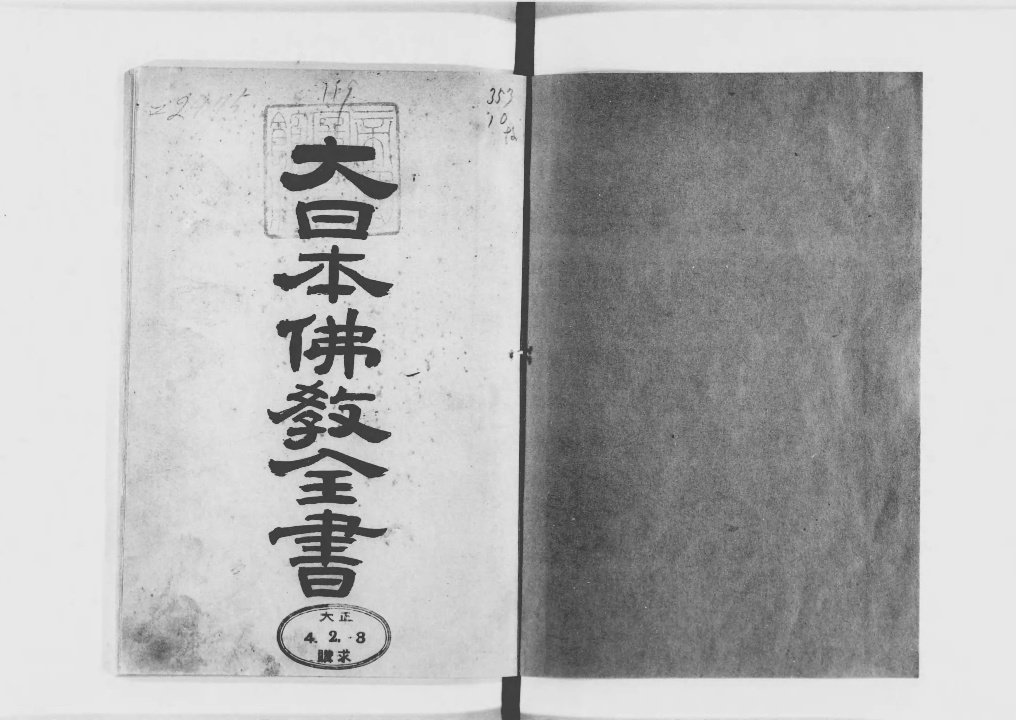 353
10
159
大日本佛教全書
大正
4. 2. 8
購求